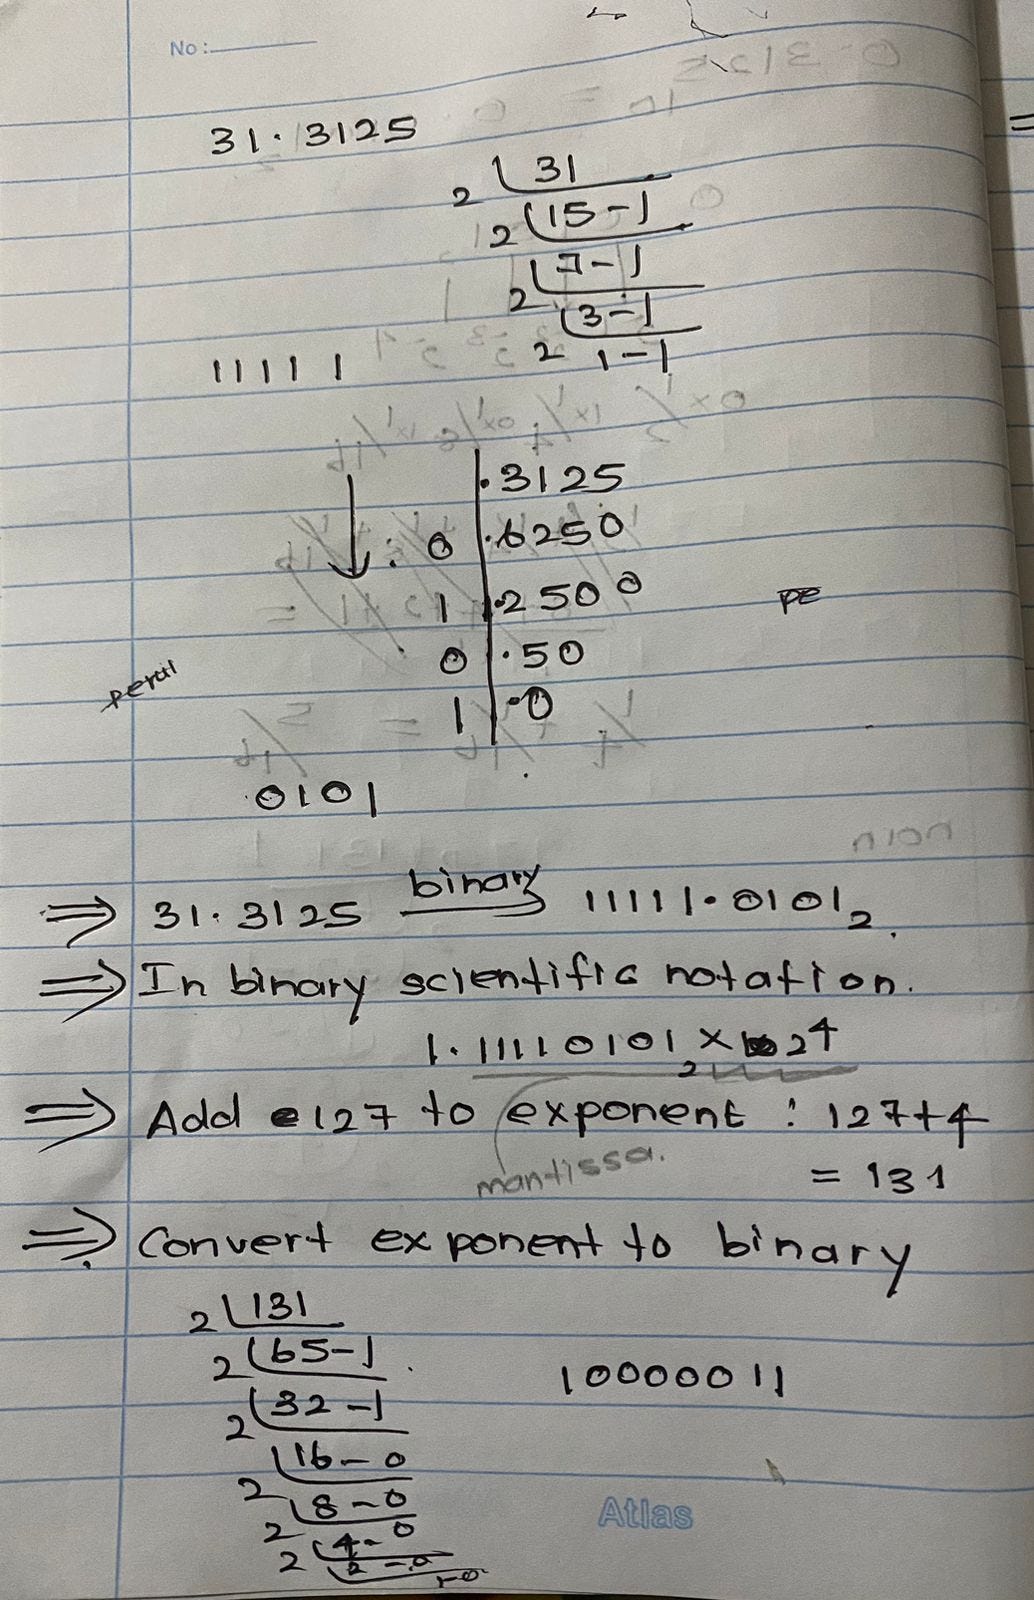 No:
31.3125
2 31
2 15-1
2 7-1
2 3-1
1-1
11111
.3125
0 .6250
1 .2500
0 .50
1 .0
pe
.0101
⇒ 31.3125 binary 11111.0101₂.
⇒ In binary scientific notation.
1.11110101₂ × 2⁴
⇒ Add 127 to exponent : 127+4
mantissa.
= 131
⇒ Convert exponent to binary
2 131
2 65-1
2 32-1
2 16-0
2 8-0
2 4-0
2-0
1-0
10000011
Atlas